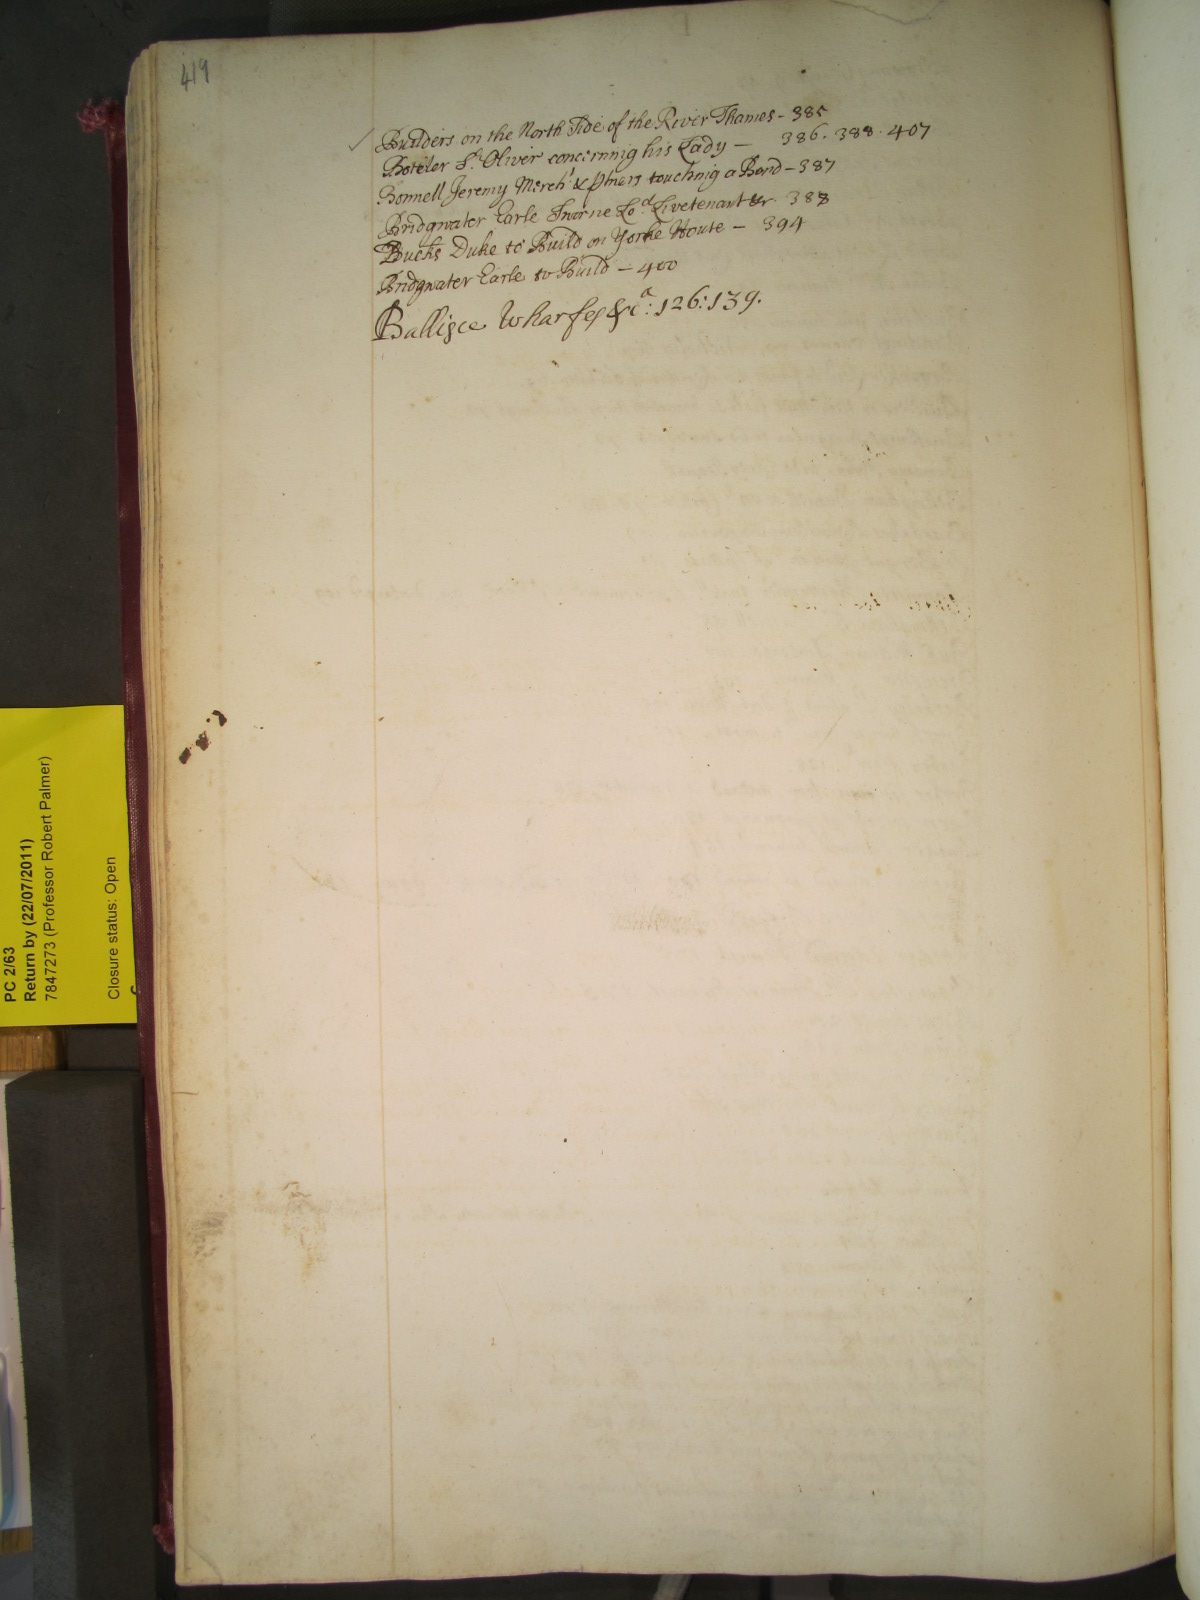 419
Builders on the North Side of the River Thames - 385
Boteler Sr. Oliver concerning his Lady - 386. 388. 407
Bonnell Jeremy Mercht & ptners touching a Bond - 387
Bridgwater Earle Sworne Lod. Livetenant &c. 388
Bucks Duke to Build on Yorke House - 394
Bridgwater Earle to Build - 400
Ballisce Wharfes &ca: 126: 139.
PC 2/63
Return by (22/07/2011)
7847273 (Professor Robert Palmer)
Closure status: Open